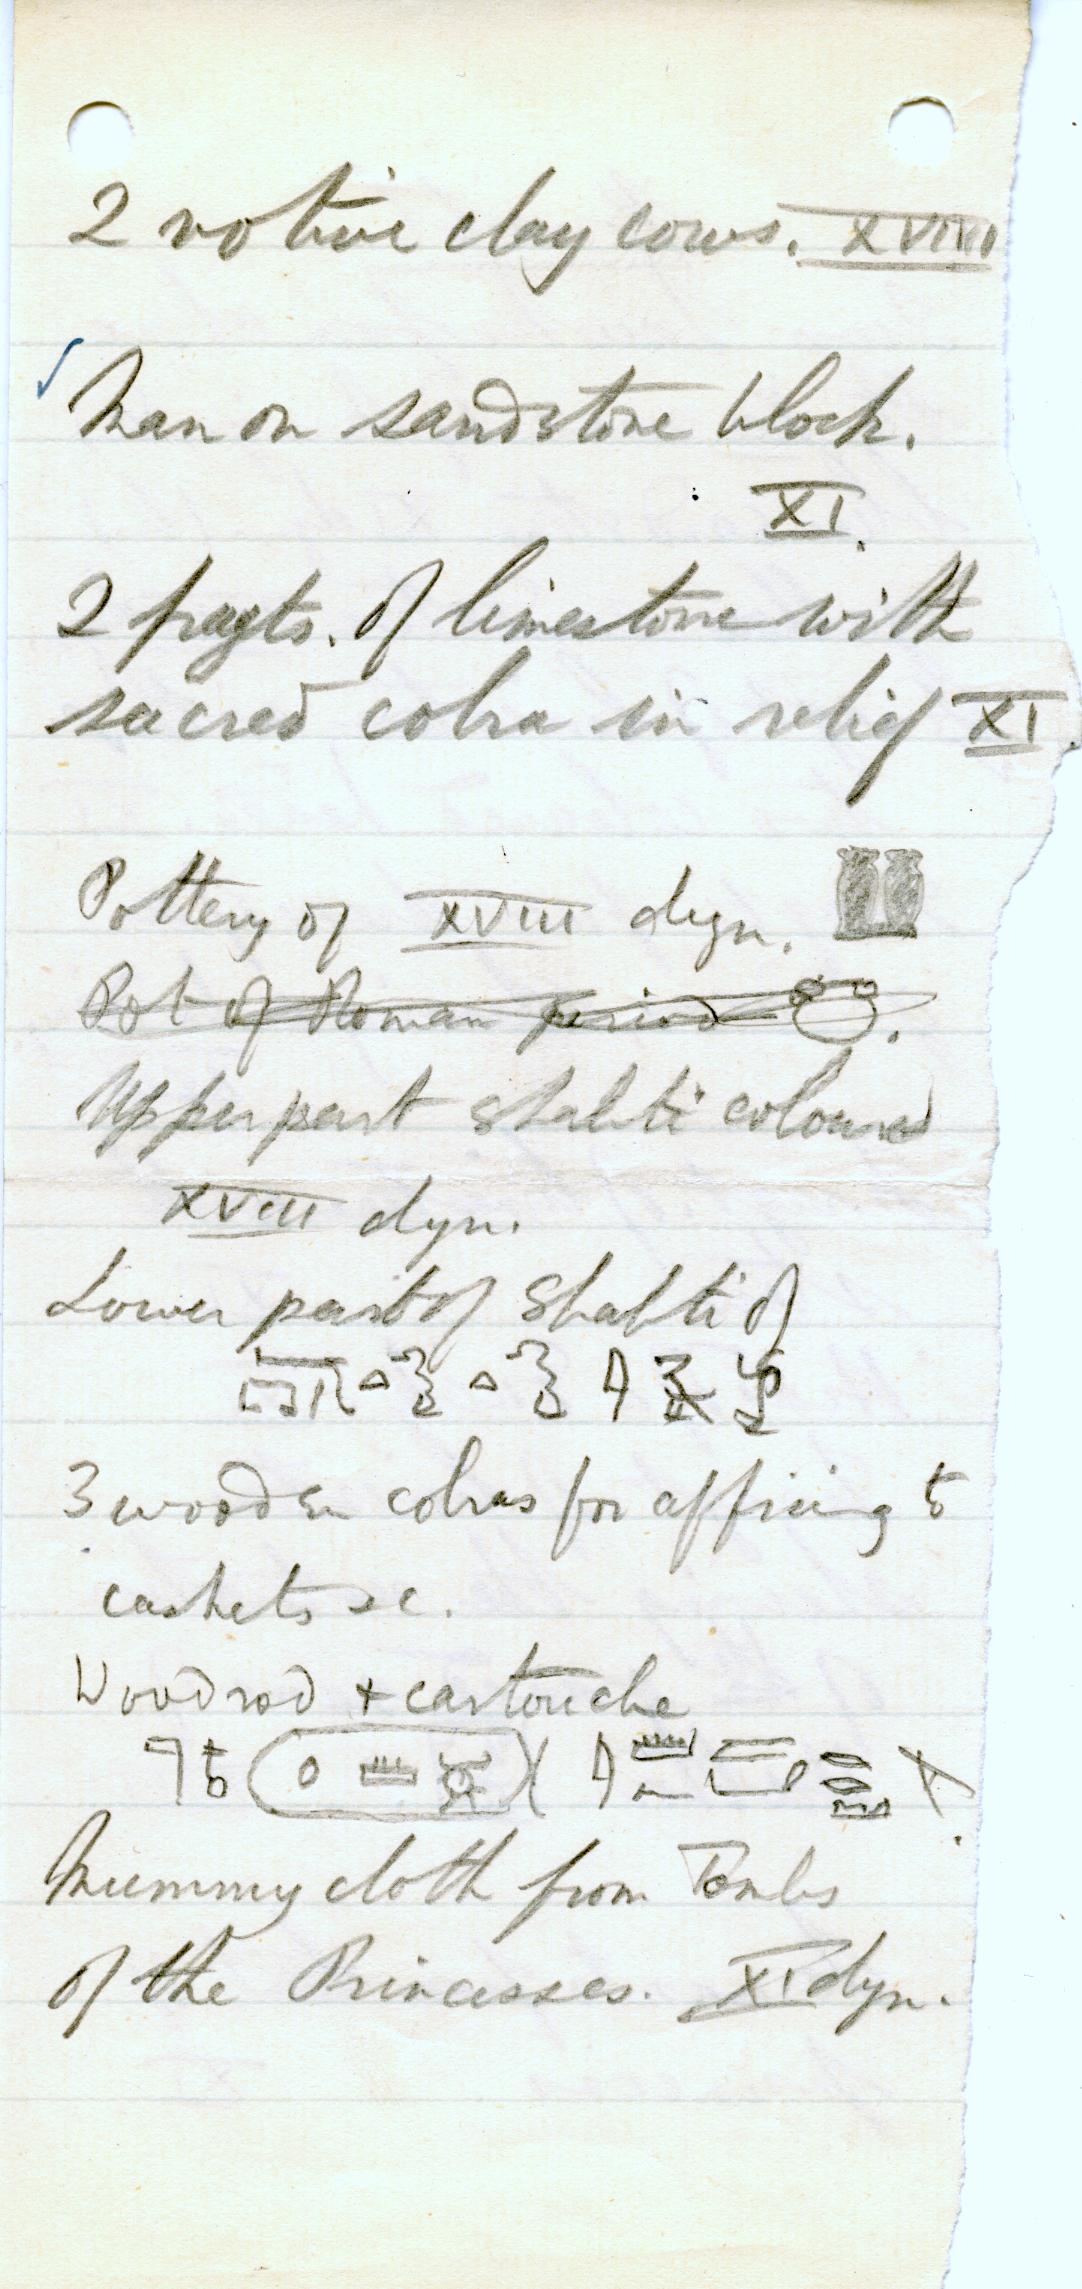 2 votive clay cows. XVIII
Man on sandstone block.
XI
2 fragts. of limestone with
sacred cobra in relief XI
Pottery of XVIII dyn.
Pot of Roman period
Upper part shabti coloured
XVIII dyn.
Lower part of Shabti of
3 wooden cobras for affixing to
caskets &c.
Wood rod + cartouche
Mummy cloth from Tombs
of the Princesses. XI dyn.